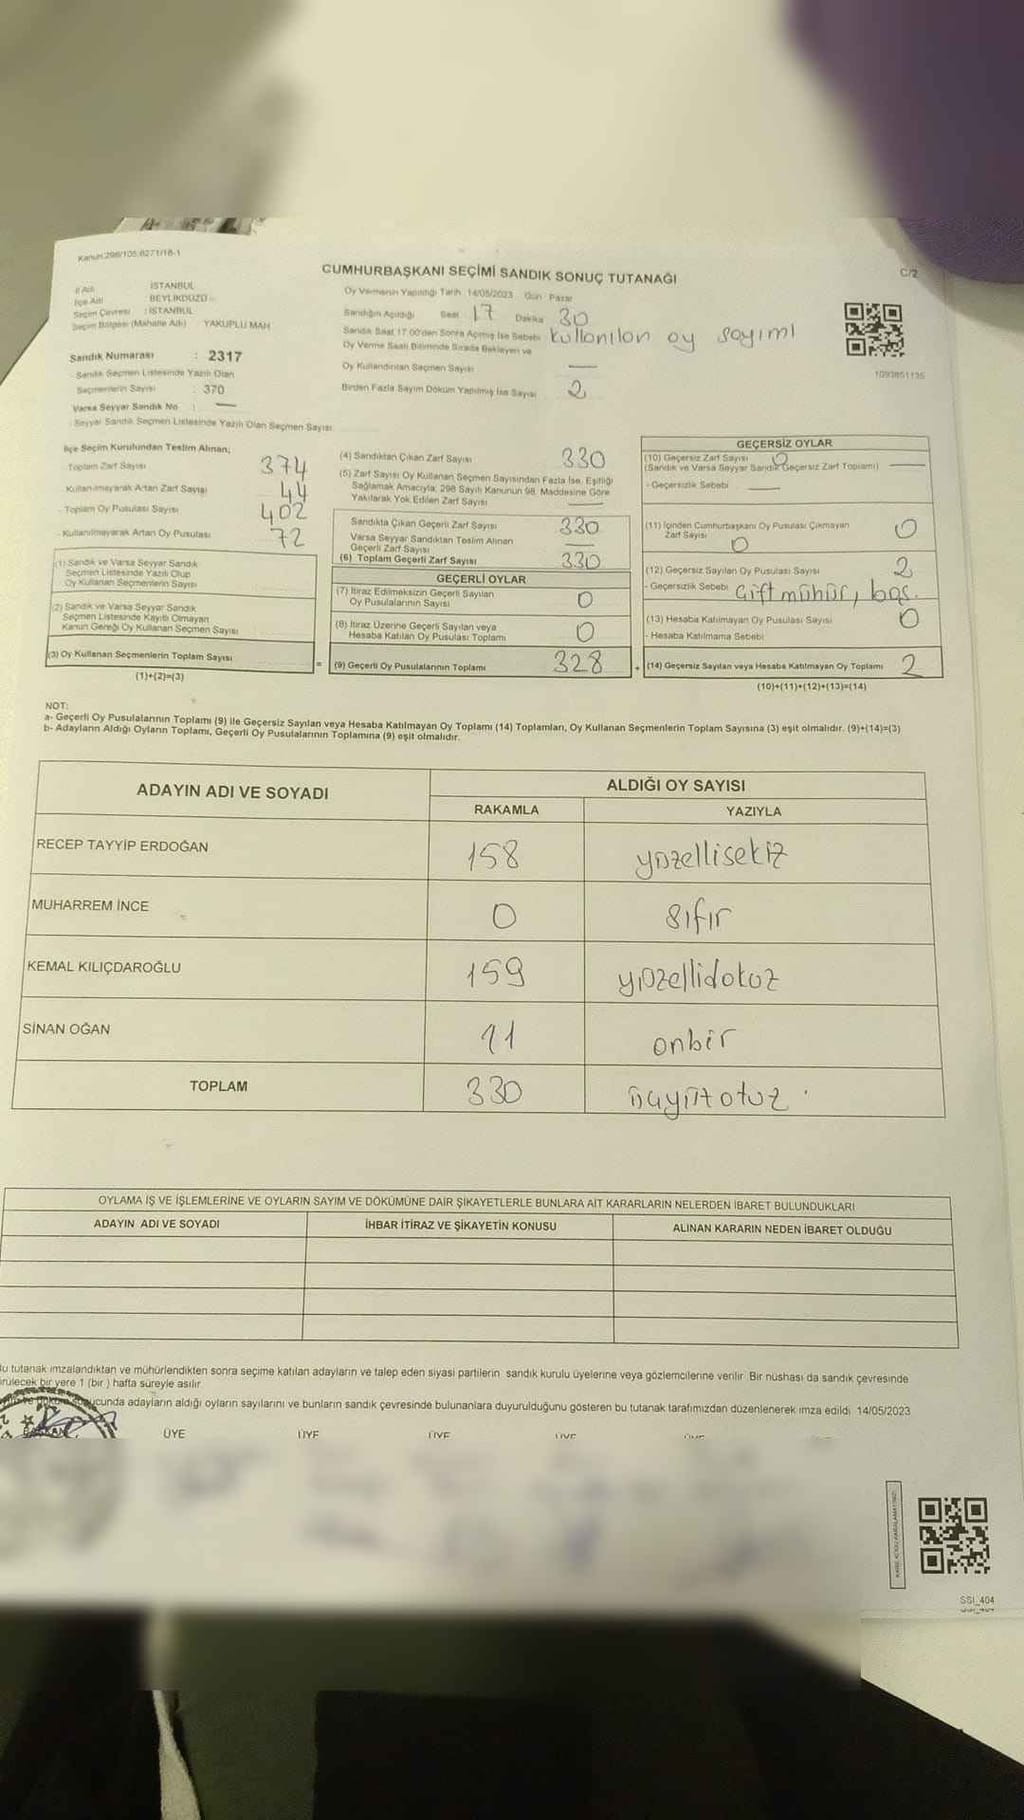 Kanun:298/105;6271/18-1
C/2
CUMHURBAŞKANI SEÇİMİ SANDIK SONUÇ TUTANAĞI
İl Adı İSTANBUL
İlçe Adı BEYLİKDÜZÜ
Seçim Çevresi : İSTANBUL
Seçim Bölgesi (Mahalle Adı) YAKUPLU MAH
Sandık Numarası : 2317
Sandık Seçmen Listesinde Yazılı Olan
Seçmenlerin Sayısı : 370
Varsa Seyyar Sandık No : —
Seyyar Sandık Seçmen Listesinde Yazılı Olan Seçmen Sayısı
Oy Vermenin Yapıldığı Tarih 14/05/2023 Gün Pazar
Sandığın Açıldığı Saat 17 Dakika 30
Sandık Saat 17.00'den Sonra Açılmış İse Sebebi kullanılan oy sayımı
Oy Verme Saati Bitiminde Sırada Bekleyen ve
Oy Kullandırılan Seçmen Sayısı —
Birden Fazla Sayım Döküm Yapılmış İse Sayısı 2
1093851135
İlçe Seçim Kurulundan Teslim Alınan;
Toplam Zarf Sayısı 374
Kullanılmayarak Artan Zarf Sayısı 44
- Toplam Oy Pusulası Sayısı 402
- Kullanılmayarak Artan Oy Pusulası 72
(1) Sandık ve Varsa Seyyar Sandık
Seçmen Listesinde Yazılı Olup
Oy Kullanan Seçmenlerin Sayısı
(2) Sandık ve Varsa Seyyar Sandık
Seçmen Listesinde Kayıtlı Olmayan
Kanun Gereği Oy Kullanan Seçmen Sayısı
(3) Oy Kullanan Seçmenlerin Toplam Sayısı
(1)+(2)=(3)
=
(4) Sandıktan Çıkan Zarf Sayısı 330
(5) Zarf Sayısı Oy Kullanan Seçmen Sayısından Fazla İse, Eşitliği
Sağlamak Amacıyla; 298 Sayılı Kanunun 98. Maddesine Göre
Yakılarak Yok Edilen Zarf Sayısı —
Sandıkta Çıkan Geçerli Zarf Sayısı 330
Varsa Seyyar Sandıktan Teslim Alınan
Geçerli Zarf Sayısı —
(6) Toplam Geçerli Zarf Sayısı 330
GEÇERLİ OYLAR
(7) İtiraz Edilmeksizin Geçerli Sayılan
Oy Pusulalarının Sayısı 0
(8) İtiraz Üzerine Geçerli Sayılan veya
Hesaba Katılan Oy Pusulası Toplamı 0
(9) Geçerli Oy Pusulalarının Toplamı 328
+
GEÇERSİZ OYLAR
(10) Geçersiz Zarf Sayısı 0
(Sandık ve Varsa Seyyar Sandık Geçersiz Zarf Toplamı) —
- Geçersizlik Sebebi —
(11) İçinden Cumhurbaşkanı Oy Pusulası Çıkmayan 0
Zarf Sayısı 0
(12) Geçersiz Sayılan Oy Pusulası Sayısı 2
- Geçersizlik Sebebi Çift mühür, boş.
(13) Hesaba Katılmayan Oy Pusulası Sayısı 0
- Hesaba Katılmama Sebebi
(14) Geçersiz Sayılan veya Hesaba Katılmayan Oy Toplamı 2
(10)+(11)+(12)+(13)=(14)
NOT:
a- Geçerli Oy Pusulalarının Toplamı (9) ile Geçersiz Sayılan veya Hesaba Katılmayan Oy Toplamı (14) Toplamları, Oy Kullanan Seçmenlerin Toplam Sayısına (3) eşit olmalıdır. (9)+(14)=(3)
b- Adayların Aldığı Oyların Toplamı, Geçerli Oy Pusulalarının Toplamına (9) eşit olmalıdır.
ADAYIN ADI VE SOYADI
ALDIĞI OY SAYISI
RAKAMLA YAZIYLA
RECEP TAYYİP ERDOĞAN 158 yüzellisekiz
MUHARREM İNCE 0 sıfır
KEMAL KILIÇDAROĞLU 159 yüzellidokuz
SİNAN OĞAN 11 onbir
TOPLAM 330 üçyüzotuz
OYLAMA İŞ VE İŞLEMLERİNE VE OYLARIN SAYIM VE DÖKÜMÜNE DAİR ŞİKAYETLERLE BUNLARA AİT KARARLARIN NELERDEN İBARET BULUNDUKLARI
ADAYIN ADI VE SOYADI İHBAR İTİRAZ VE ŞİKAYETİN KONUSU ALINAN KARARIN NEDEN İBARET OLDUĞU
tutanak imzalandıktan ve mühürlendikten sonra seçime katılan adayların ve talep eden siyasi partilerin sandık kurulu üyelerine veya gözlemcilerine verilir. Bir nüshası da sandık çevresinde
bir yere 1 (bir) hafta süreyle asılır.
adayların aldığı oyların sayılarını ve bunların sandık çevresinde bulunanlara duyurulduğunu gösteren bu tutanak tarafımızdan düzenlenerek imza edildi. 14/05/2023
ÜYE ÜYE ÜYE ÜYE
SSI_404